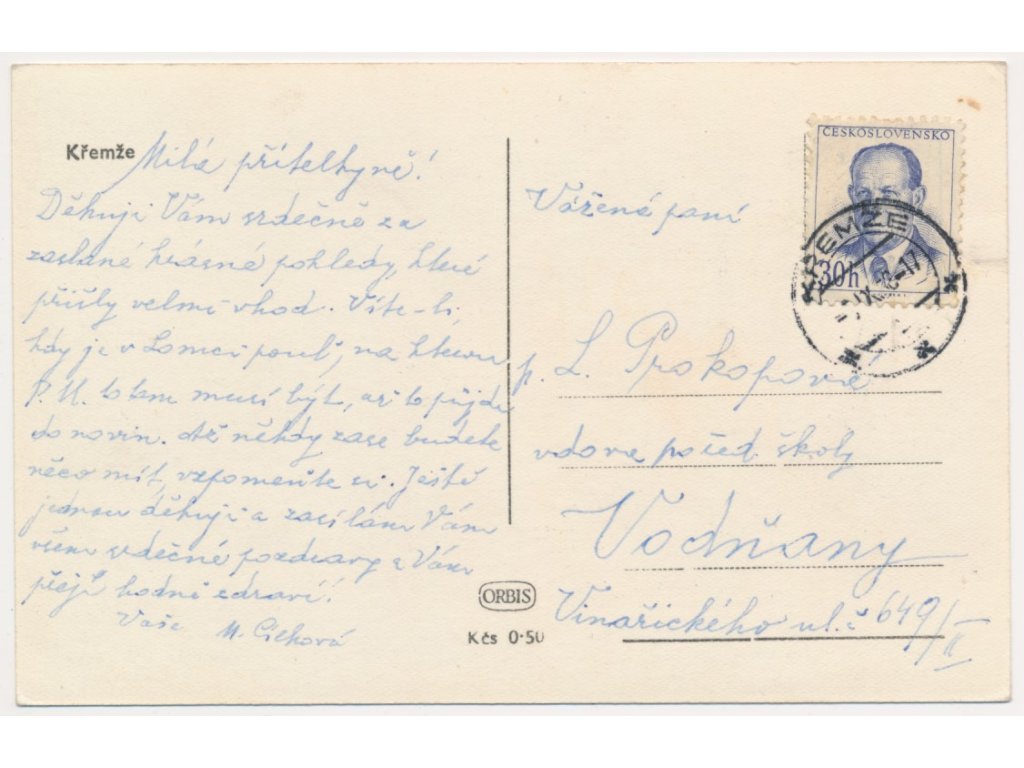 Křemže
Milá přítelkyně!
Děkuji Vám srdečně za
zaslané krásné pohledy, které
přišly velmi vhod. Víte-li,
kdy je v Lomci pouť, na kterou
P. M. to tam musí být, až to přijde
do novin. Až někdy zase budete
něco mít, vzpomeňte si. Ještě
jednou děkuji a zasílám Vám
všem srdečné pozdravy a Vám
přeji hodně zdraví!
Vaše M. Cílková
ORBIS
Kčs 0·50
ČESKOSLOVENSKO
30h
KŘEMŽE
Vážená paní
p. L. Prokopová
vdova po řed. školy
Vodňany
Vinařického ul. č 649/II